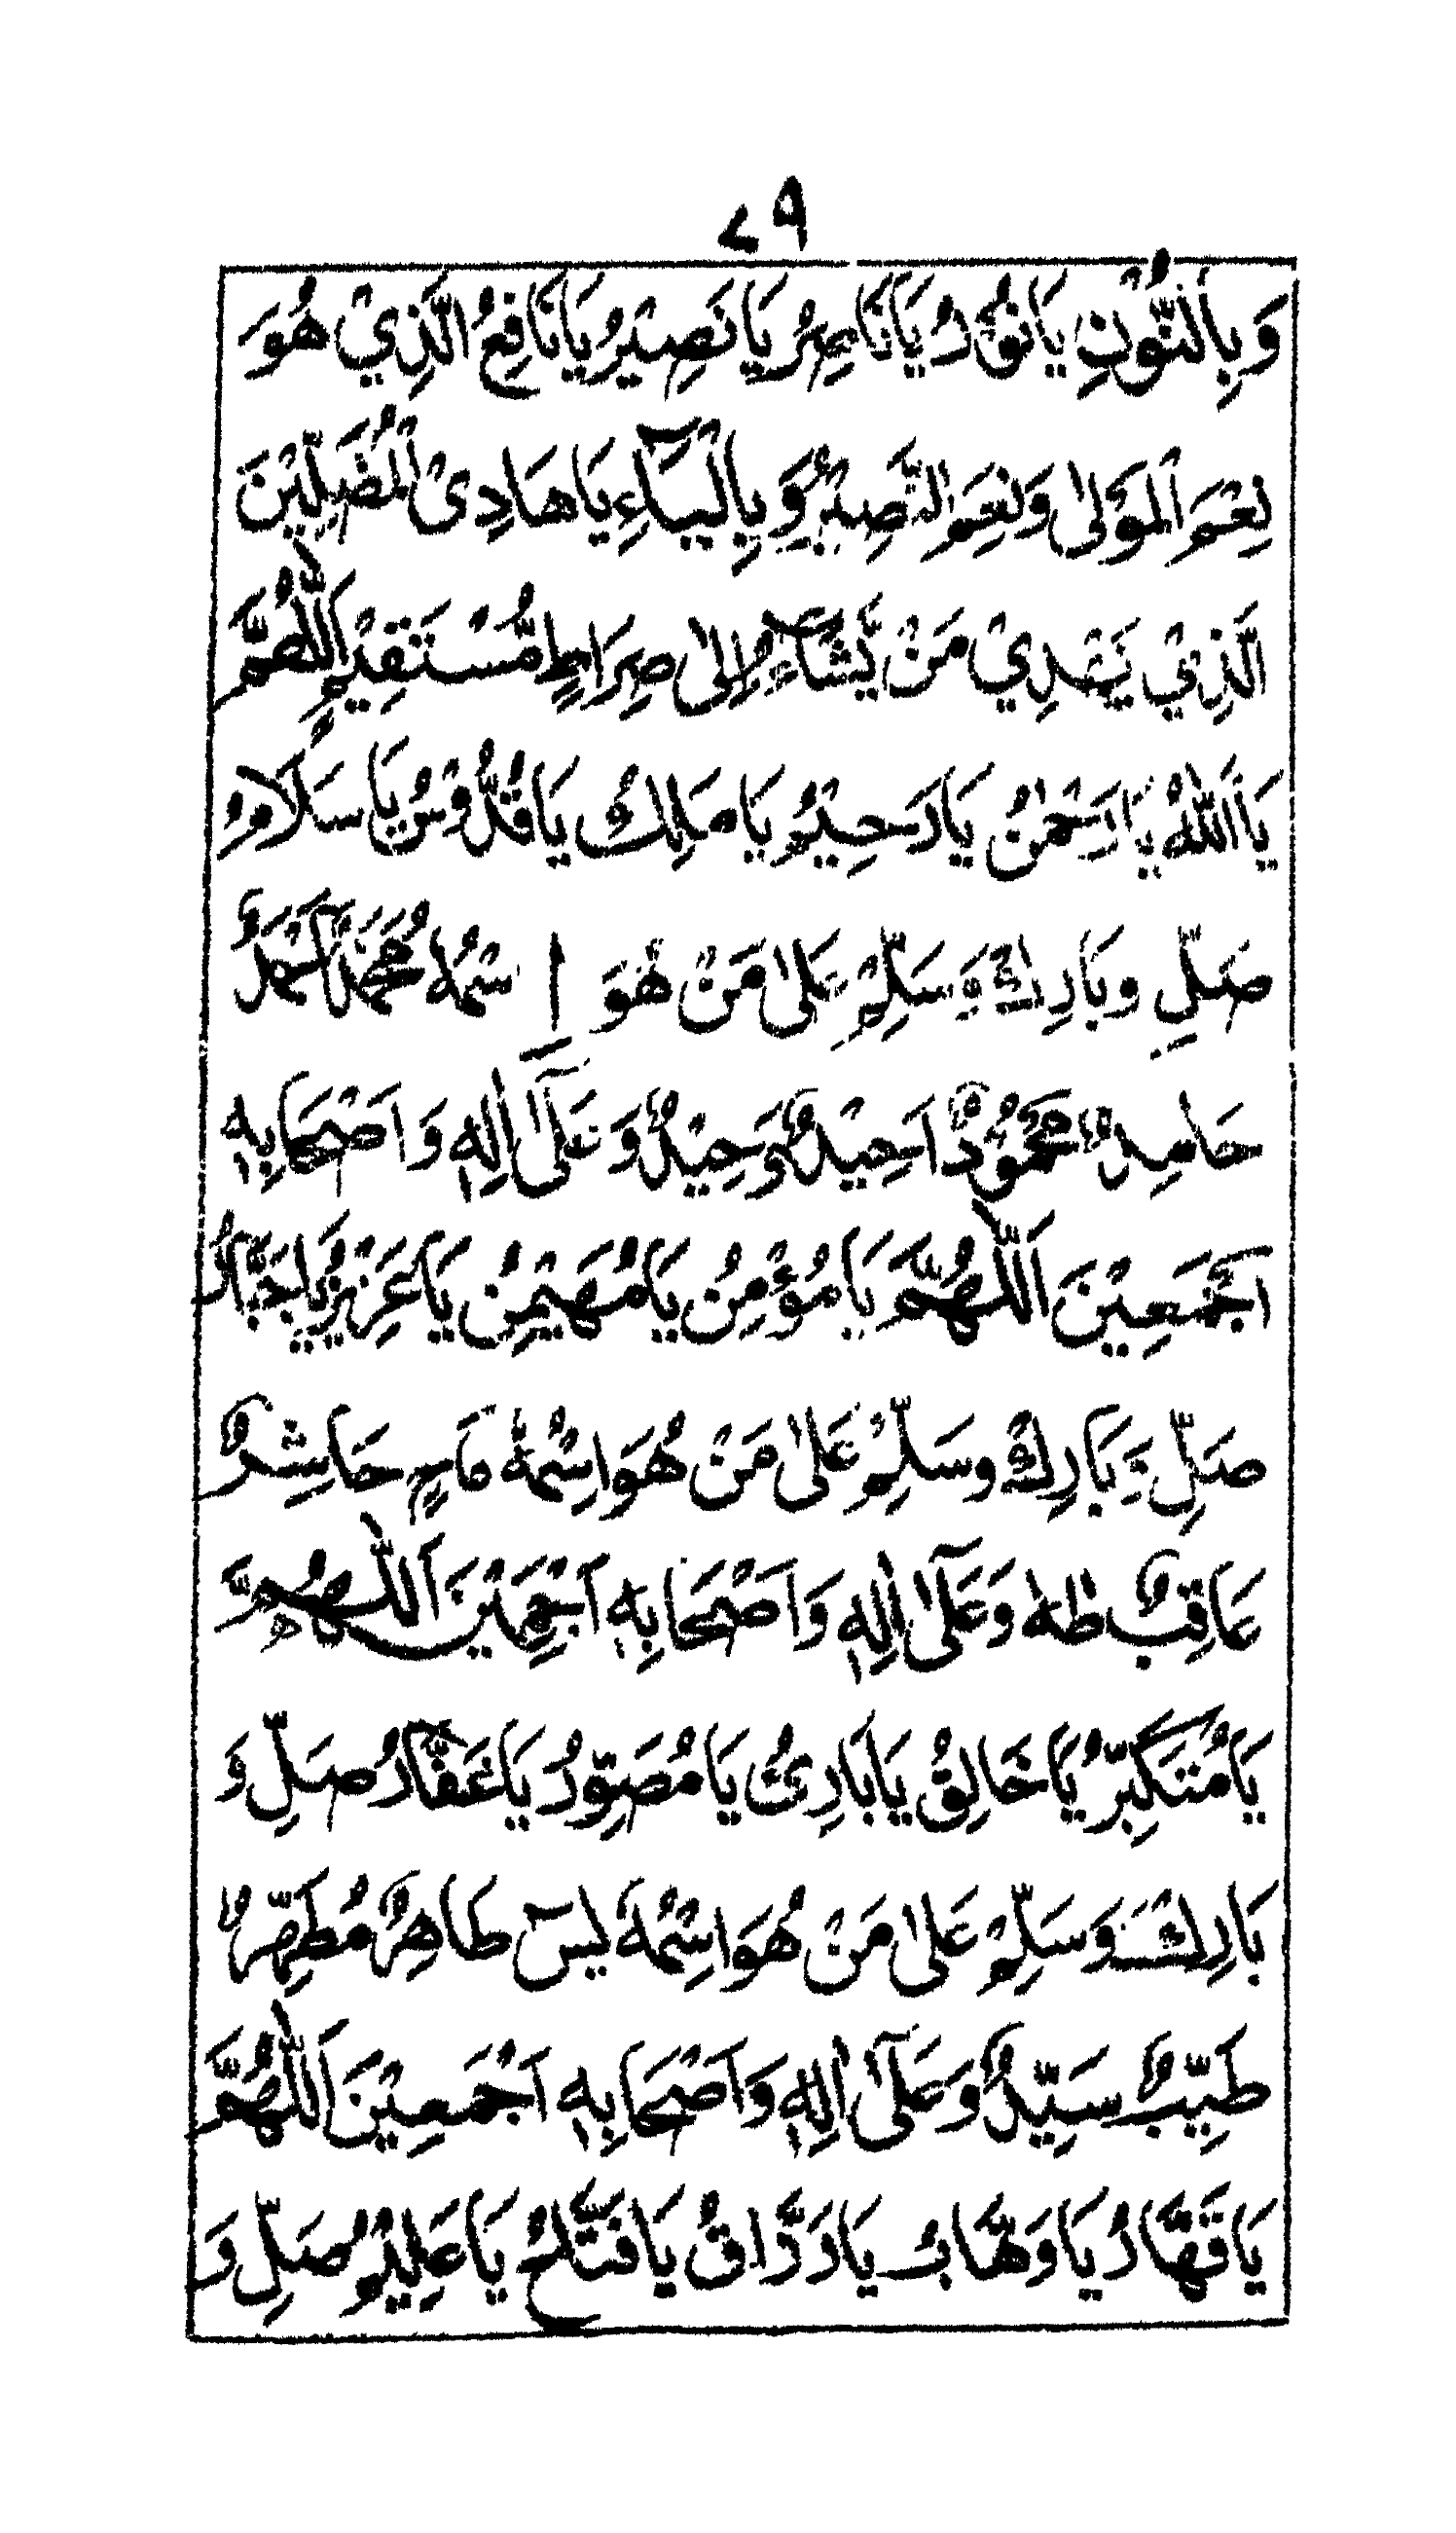 ٧٩
وَبِالنُّوْنِ يَا نُوْرُ يَا نَاصِرُ يَا نَصِيْرُ يَا نَافِعُ الَّذِيْ هُوَ
نِعْمَ الْمَوْلٰى وَنِعْمَ النَّصِيْرُ وَ بِالْيَآءِ يَا هَادِىْ الْمُضِلِّيْنَ
الَّذِيْ يَهْدِيْ مَنْ يَّشَآءُ اِلٰى صِرَاطٍ مُّسْتَقِيْمٍ اَللّٰهُمَّ
يَا اَللّٰهُ يَا رَحْمٰنُ يَا رَحِيْمُ يَا مَلِكُ يَا قُدُّوْسُ يَا سَلَامُ
صَلِّ وبَارِكْ وَسَلِّمْ عَلٰى مَنْ هُوَ اِسْمُهٗ مُحَمَّدٌ اَحْمَدُ
حَامِدٌ مَحْمُوْدٌ اَحِيْدٌ وَحِيْدٌ وَعَلٰٓى اٰلِهٖ وَاَصْحَابِهٖ
اَجْمَعِيْنَ اَللّٰهُمَّ يَا مُؤْمِنُ يَا مُهَيْمِنُ يَا عَزِيْزُ يَا جَبَّارُ
صَلِّ وَ بَارِكْ وسَلِّمْ عَلٰى مَنْ هُوَ اسْمُهٗ مَاحٍ حَاشِرٌ
عَاقِبٌ طٰهٰ وَعَلٰٓى اٰلِهٖ وَاَصْحَابِهٖ اَجْمَعِيْنَ اَللّٰهُمَّ
يَا مُتَكَبِّرُ يَا خَالِقُ يَا بَارِئُ يَا مُصَوِّرُ يَا غَفَّارُ صَلِّ وَ
بَارِكْ وَسَلِّمْ عَلٰى مَنْ هُوَ اسْمُهٗ يٰسٓ طَاهِرٌ مُطَهِّرٌ
طَيِّبٌ سَيِّدٌ وَعَلٰٓى اٰلِهٖ وَاَصْحَابِهٖ اَجْمَعِيْنَ اَللّٰهُمَّ
يَا قَهَّارُ يَا وَهَّابُ يَا رَزَّاقُ يَا فَتَّاحُ يَا عَلِيْمُ صَلِّ وَ